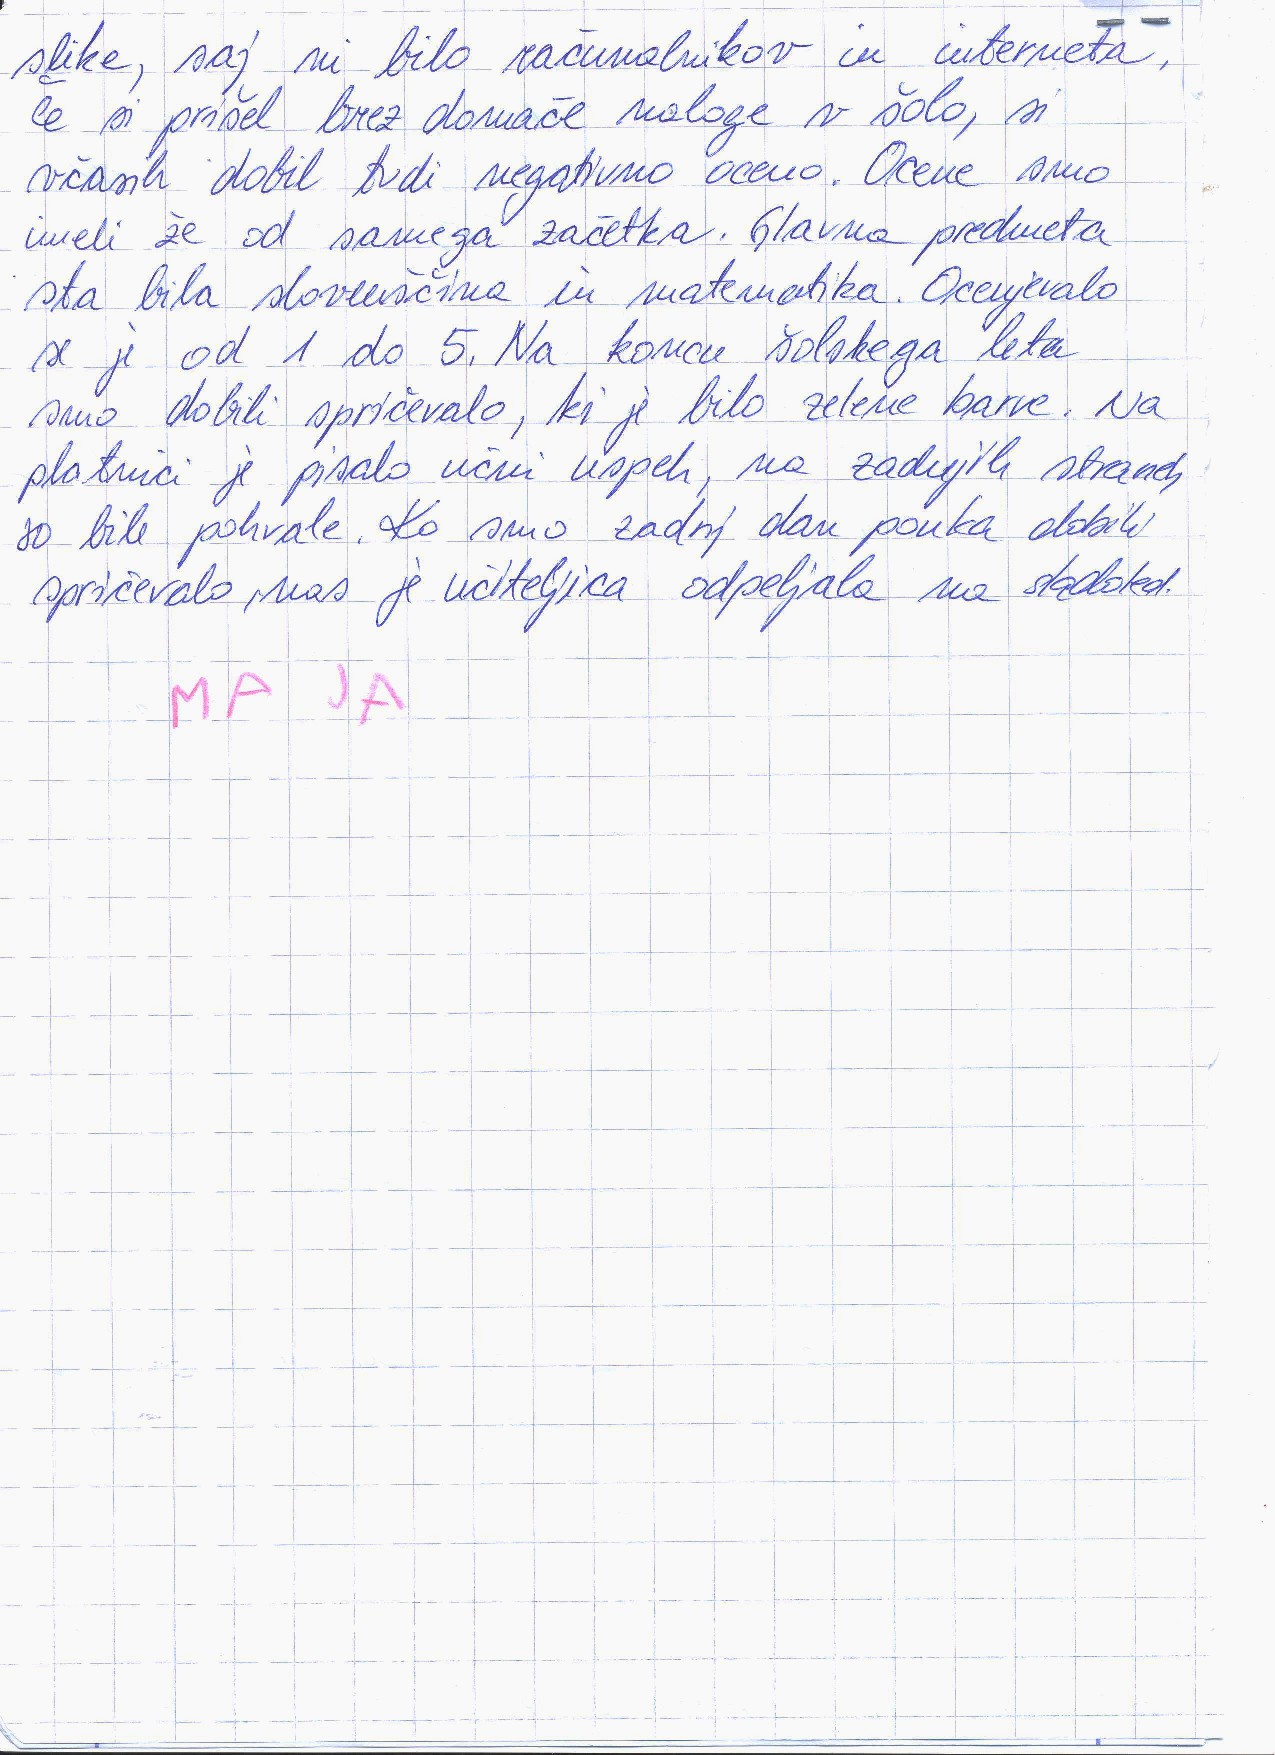 slike, saj ni bilo računalnikov in interneta.
Če si prišel brez domače naloge v šolo, si
včasih dobil tudi negativno oceno. Ocene smo
imeli že od samega začetka. Glavna predmeta
sta bila slovenščina in matematika. Ocenjevalo
se je od 1 do 5. Na koncu šolskega leta
smo dobili spričevalo, ki je bilo zelene barve. Na
platnici je pisalo učni uspeh, na zadnjih straneh
so bile pohvale. Ko smo zadnji dan pouka dobili
spričevalo, nas je učiteljica odpeljala na sladoled.
MAJA